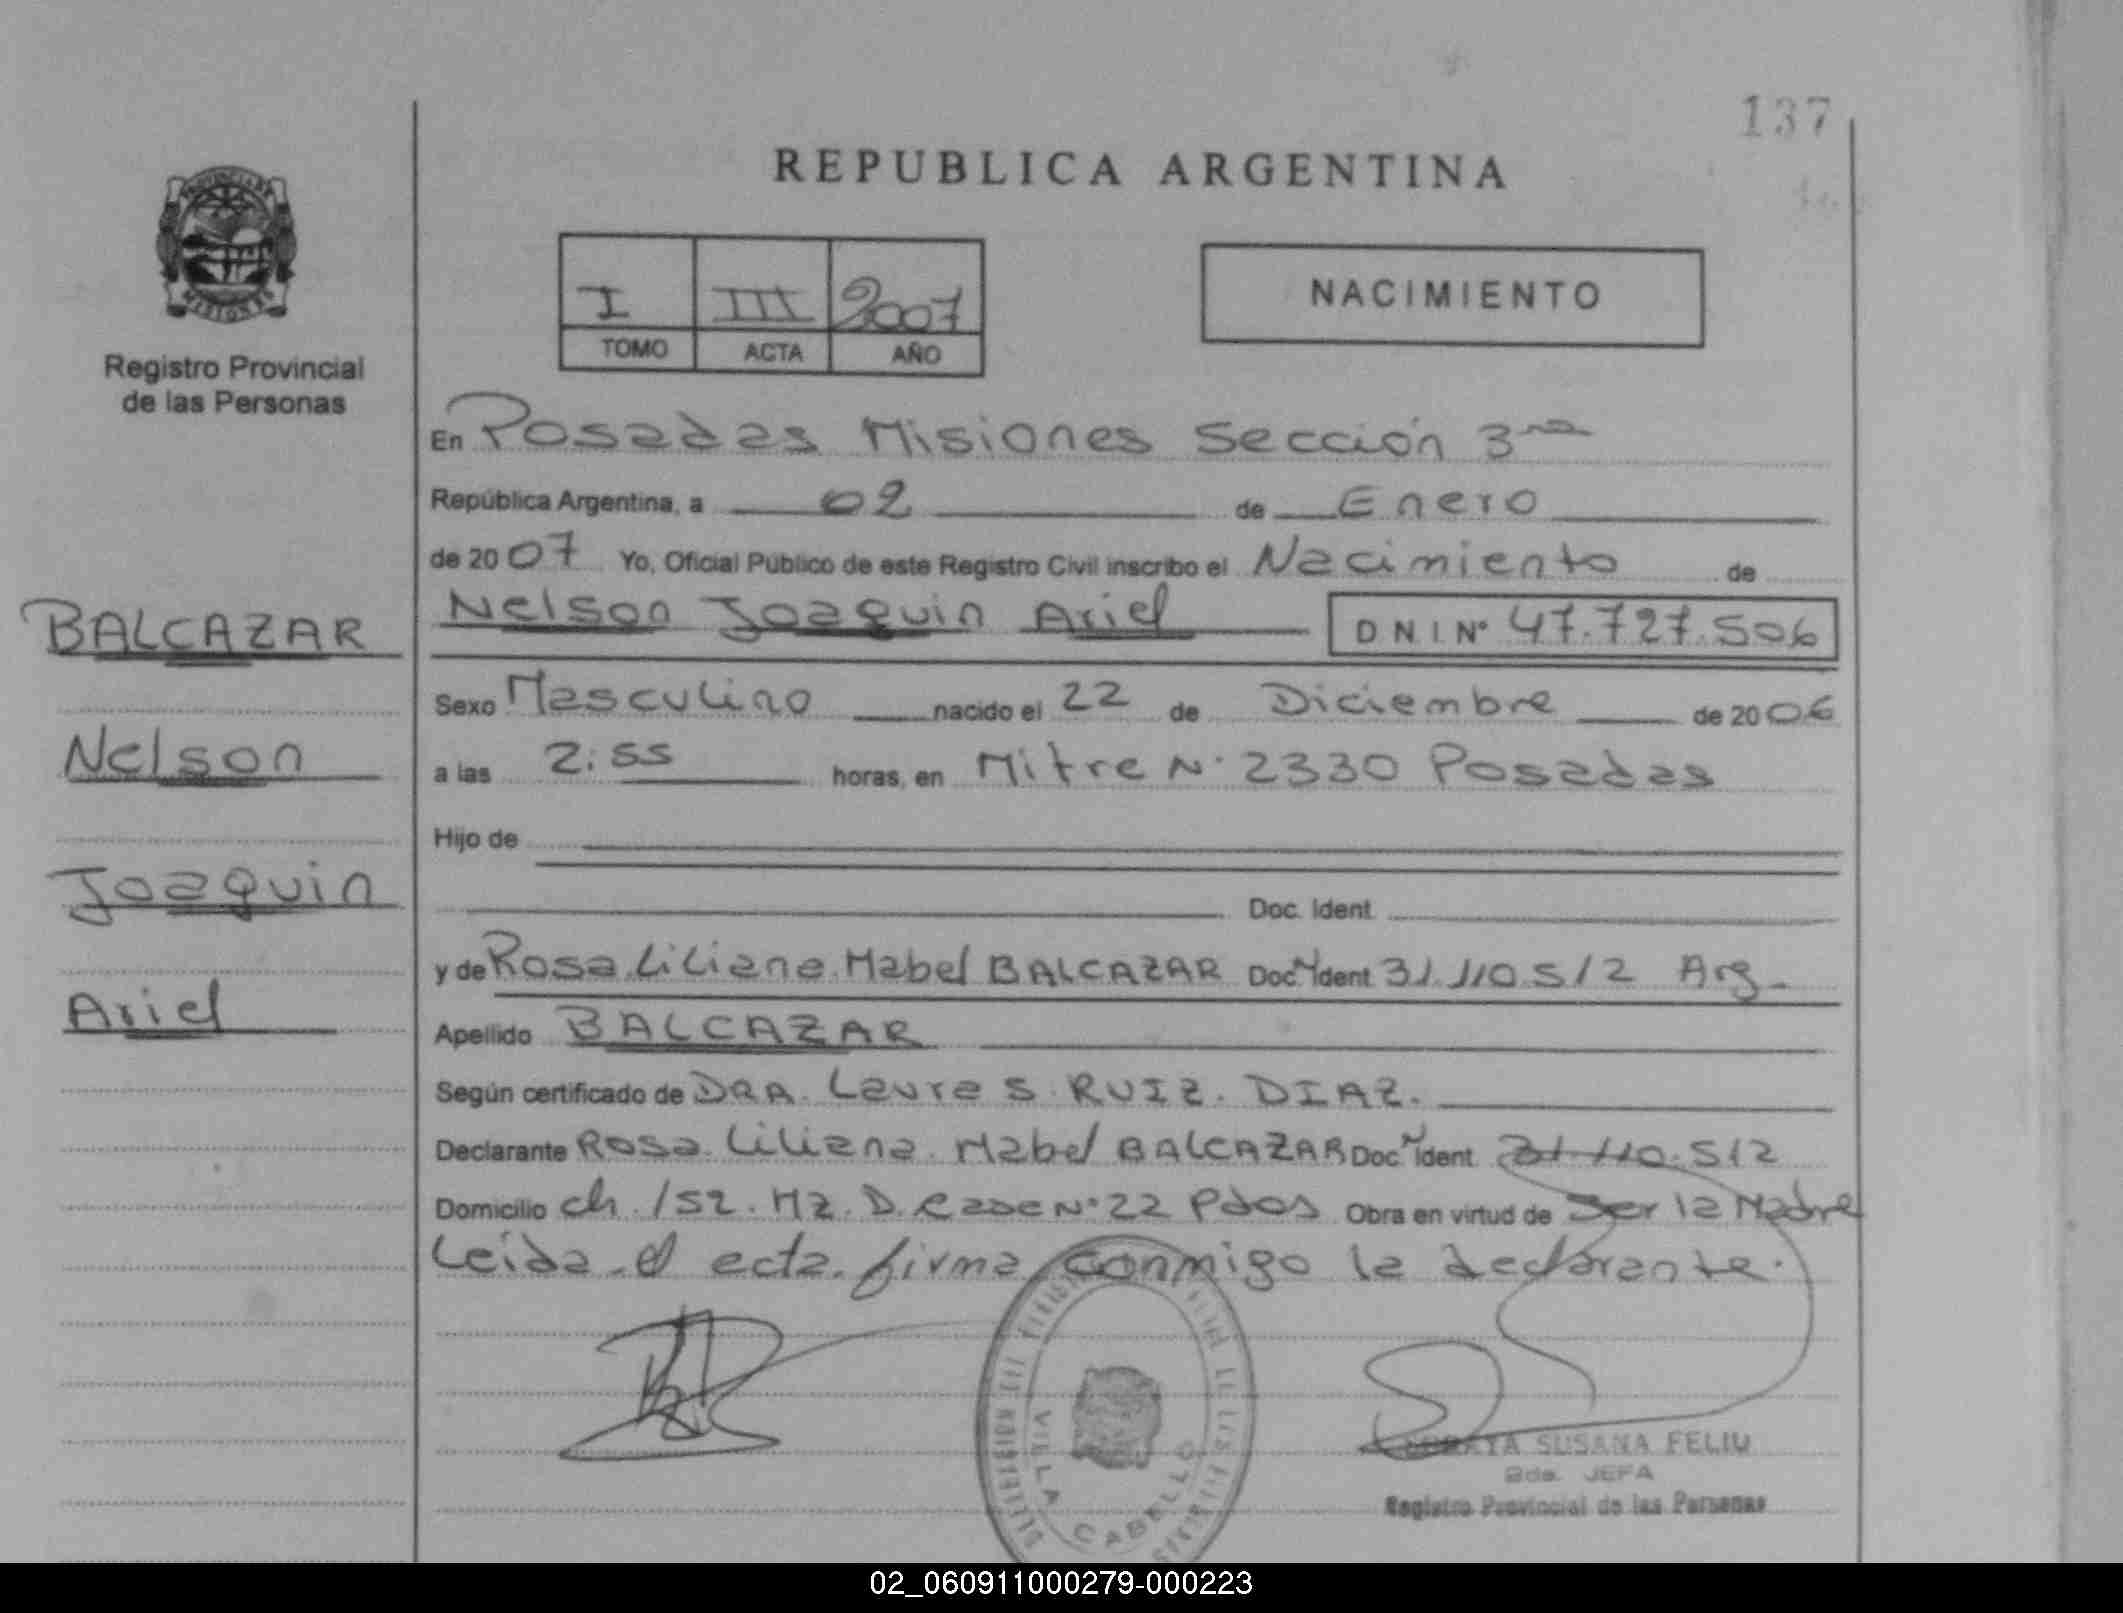 137
REPUBLICA ARGENTINA
PROVINCIA DE
MISIONES
Registro Provincial
de las Personas
I III 2007
TOMO ACTA AÑO
NACIMIENTO
En Posadas Misiones Sección 3ra
República Argentina, a 02 de Enero
de 2007 Yo, Oficial Público de este Registro Civil inscribo el Nacimiento de
BALCAZAR
Nelson Joaquin Ariel DNI Nº 47.727.506
Sexo Masculino nacido el 22 de Diciembre de 2006
Nelson
a las 2:55 horas, en Mitre Nº 2330 Posadas
Hijo de
Joaquin
Doc. Ident.
y de Rosa Liliana Mabel BALCAZAR Doc. Ident 31.110.512 Arg.
Ariel
Apellido BALCAZAR
Según certificado de DRA. Laura S. RUIZ. DIAZ.
Declarante Rosa Liliana Mabel BALCAZAR Doc. Ident 31.110.512
Domicilio ch. 152. Mz. D. Casa Nº 22 Pdas Obra en virtud de Ser la Madre
Leida el acta firma conmigo la declarante.
VILLA CABELLO
SUSANA FELIU
2da. JEFA
Registro Provincial de las Personas
02_060911000279-000223